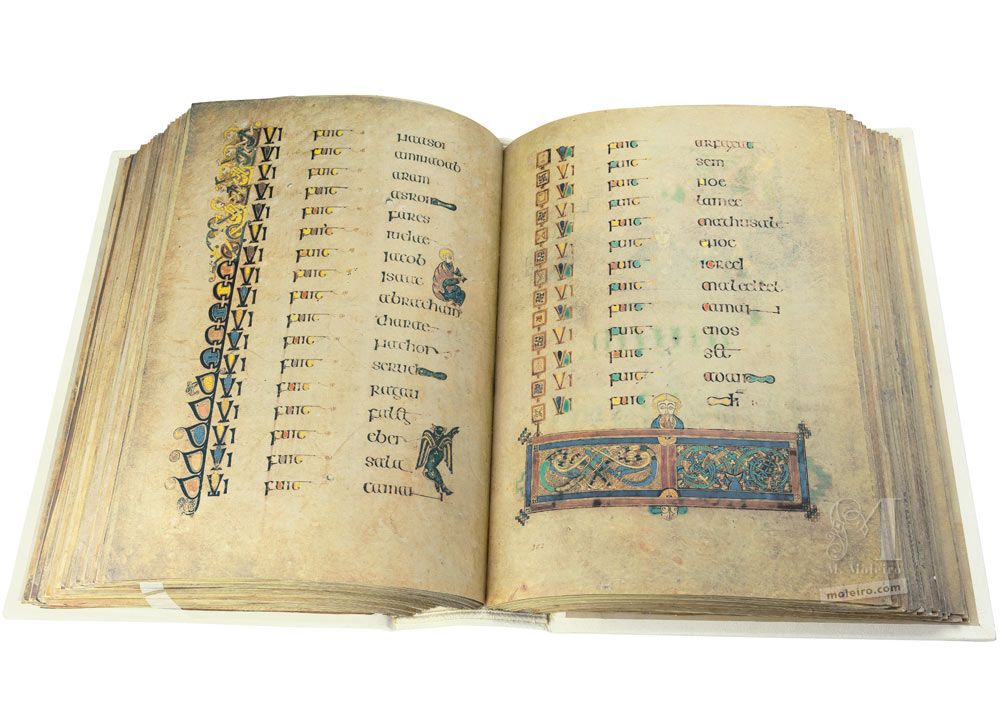 QUI fuit naason
QUI fuit aminadab
QUI fuit aram
QUI fuit esrom
QUI fuit fares
QUI fuit iudae
QUI fuit iacob
QUI fuit isaac
QUI fuit abracham
QUI fuit tharae
QUI fuit nachor
QUI fuit seruch
QUI fuit ragau
QUI fuit
QUI fuit eber
QUI fuit sala
QUI fuit cainan
QUI fuit arfaxat
QUI fuit sem
QUI fuit noe
QUI fuit lamec
QUI fuit mathusale
QUI fuit enoc
QUI fuit iared
QUI fuit
QUI fuit cainan
QUI fuit enos
QUI fuit
QUI fuit adam
QUI fuit di
M. Moleiro
moleiro.com